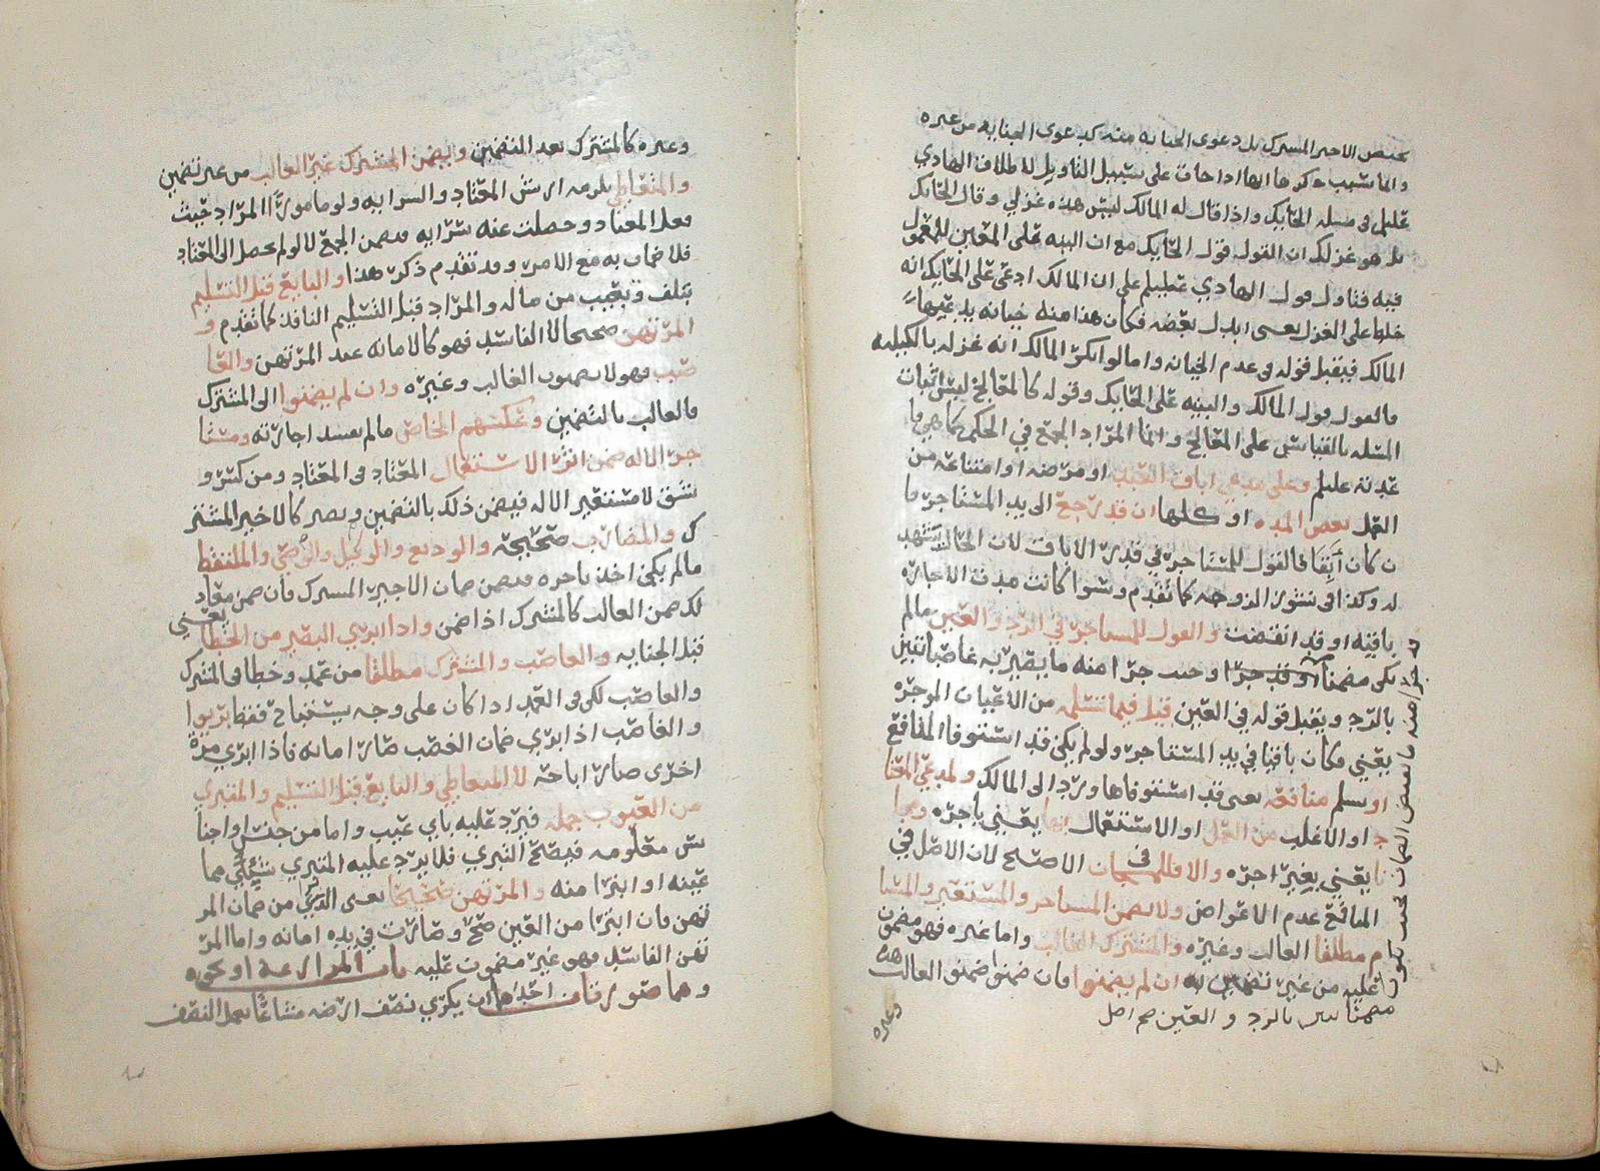 يختص الاجير المشترك بل دعوى الخيانه منه كدعوى الجنايه من غيره
وانما شيب ذكرها ايها اذا خاف على سبيل التاويل لاطلاق الهادي
عليلم في مسله الحايك واذا قال له المالك ليس هذه غزلي وقال الحايك
بل هو غزلك ان القول قول الحايك مع ان البينه على المعين للمعمول
فيه فتاول قول الهادي عليلم على ان المالك ادعى على الحايك انه
خلط على الغزل يعني ابدل بعضه فكان هذا منه خيانه يدعيها
المالك فيقبل قوله في عدم الخيانه واما لو انكر المالك انه غزله بالكليه
فالقول قول المالك والبينه على الحايك وقوله كالمعالج ليس اثبات
المسله بالقياس على المعالج وانما المراد الجمع في الحكم كما هي
عادته عليلم وعلى مدعي اباق العبد او مرضه او امتناعه من
العمل بعض المده او كلها ان قد رجع الى يد المستاجر ما
ن كان آبقا فالقول للمستاجر في قدر الاباق لان الحال يشهد
له وكذا في نشوز الزوجه كما تقدم وسوا كانت مدت الاجاره
باقيه او قد انقضت والقول للمستاجر في الرد والعين مالم
يكن مضمنا او قد جرا وحيث جرا منه ما يصير به غاصبا تبين
بالرد ويقبل قوله في العين قيل فيما تسلمه من الاعيان الموجره
يعني وكان باقيا في يد المستاجر ولو لم يكن قد استوفا المنافع
او تسلم منافعه يعني قد استوفاها ورد الى المالك ولمدعي المعتا
د او الاغلب من العمل او الاستعمال ايها يعني باجره وبها
نا يعني بغير اجره والا فللمجان الاصح لان الاصل في
المنافع عدم الاعواض ولا يضمن المستاجر والمستعير والمستا
م مطلقا الغالب وغيره والمشترك الغالب واما غيره فهو مضمون
عليه من غير تضمين له ان لم يضمنوا فان ضمنوا ضمنوا الغالب
مضمنا بين بالرد والعين صح اصل
وغيره
وغيره كالمشترك بعد التضمين ويضمن المشترك غير الغالب من غير تضمين
والمتعاطي يلزمه ارش المعتاد والسرايه ولو مامورا المراد حيث
فعل المعتاد وحصلت عنه سرايه فيضمن الجمع لا لو لم يحصل الى المعتاد
فلا ضمان به مع الامر وقد تقدم ذكر هذا والبايع قبل التسليم
يتلف وتعيب من ماله والمراد قبل التسليم النافذ كما تقدم و
المرتهن صحيحا لا الفاسد فهو كالامانه عند المرتهن والغا
صب فهولا يضمنون الغالب وغيره وان لم يضمنوا الى المشترك
فالغالب بالتضمين وعكسهم الخاص مالم يفسد اجارته ومستا
جر الاله ضمن اثر الاستعمال المعتاد في المعتاد ومن كسر و
شق لا مستعير الاله فيضمن ذلك بالتضمين ويصير كالاجير المشتر
ك والمضارب صحيحه والوديع والوكيل والوصي والملتقط
مالم يكن اخذ باجره فيضمن ضمان الاجير المشترك فان ضمن مع ذ
لك ضمن الغالب كالمشترك اذا ضمن واذا ابري البصير من الخطا يعني
قبل الجنايه والغاصب والمشترك مطلقا من عمد وخطا في المشترك
والغاصب لكن في العمد اذا كان على وجه يستباح فقط بريوا
والغاصب اذا ابري ضمان الغصب صار امانه فاذا ابري مرة
اخرى صار اباحه لا المتعاطي والبايع قبل التسليم والمتبري
من العيوب جمله فيرد عليه باي عيب واما من جنس او اجنا
س معلومه فيصح التبري فلا يرد عليه المتبري شي مما
عينه او ابرا منه والمرتهن صحيحا يعني ابري من ضمان المر
تهن فان ابرا من العين صح وصارت في يده امانه واما المر
تهن الفاسد فهو غير مضمون عليه باب المزارعة او نحوه
وهما صورتان احداهما ان يكري نصف ارضه مشاعا بعمل النصف